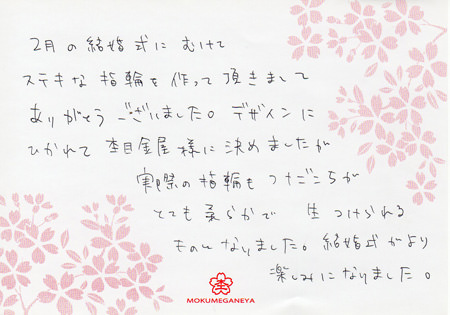 2月の結婚式にむけて
ステキな指輪を作って頂きまして
ありがとうございました。デザインに
ひかれて杢目金屋様に決めましたが
実際の指輪もつけごこちが
とても柔らかで 生つけられる
ものになりました。結婚式がより
楽しみになりました。
MOKUMEGANEYA